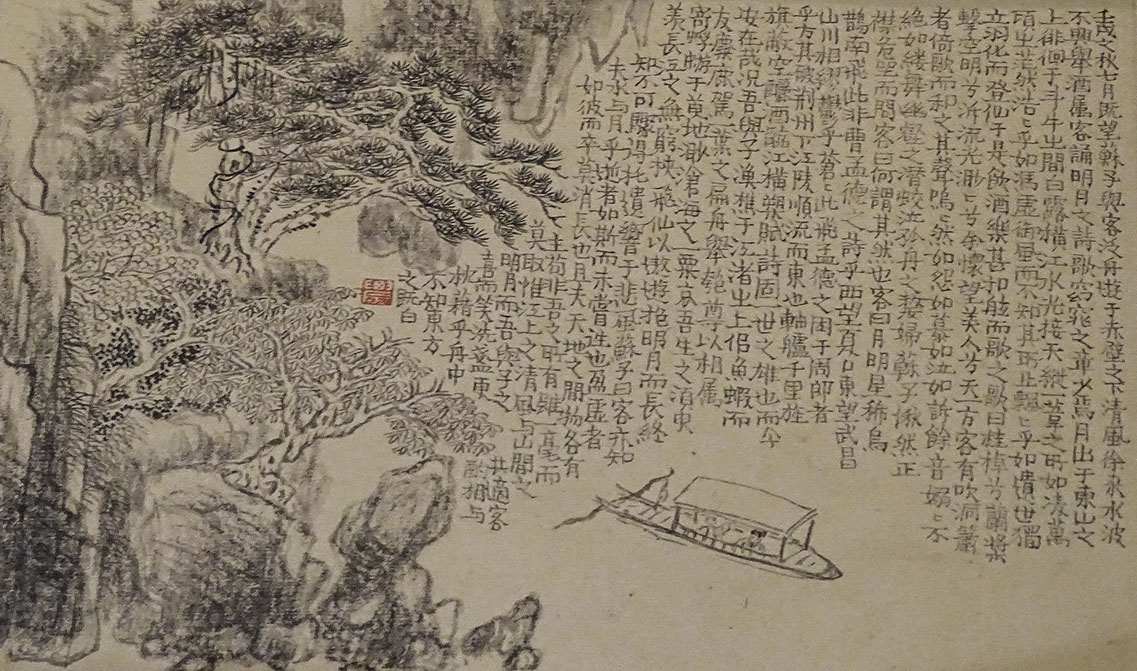 壬戌之秋七月既望蘇子與客泛舟遊于赤壁之下清風徐來水波
不興舉酒屬客誦明月之詩歌窈窕之章少焉月出于東山之
上徘徊于斗牛之間白露橫江水光接天縱一葦之所如凌萬
頃之茫然浩〻乎如馮虛御風而不知其所止飄〻乎如遺世獨
立羽化而登仙于是飲酒樂甚扣舷而歌之歌曰桂棹兮蘭槳
擊空明兮泝流光渺〻兮予懷望美人兮天方客有吹洞簫
者倚歌而和之其聲嗚〻然如怨如慕如泣如訴餘音嫋〻不
絕如縷舞幽壑之潛蛟泣孤舟之嫠婦蘇子愀然正
襟危坐而問客曰何謂其然也客曰月明星稀烏
鵲南飛此非曹孟德之詩乎西望夏口東望武昌
山川相繆鬱乎蒼〻此非孟德之困于周郎者
乎方其破荊州下江陵順流而東也軸艫千里旌
旗蔽空釃酒臨江橫槊賦詩固一世之雄也而今
安在哉況吾與子漁樵于江渚之上侶魚蝦而
友麋鹿駕一葉之扁舟舉匏尊以相屬
寄蜉蝣于天地渺滄海之一粟哀吾生之須臾
羨長江之無窮挾飛仙以遨遊抱明月而長終
知不可驟得托遺響于悲風蘇子曰客亦知
夫水与月乎逝者如斯而未嘗往也盈虛者
如彼而卒莫消長也且夫天地之間物各有
主苟非吾之所有雖一毫而
莫取惟江上之清風与山間之
明月而吾與子之共適客
喜而笑洗盞更相与
枕藉乎舟中
不知東方
之既白